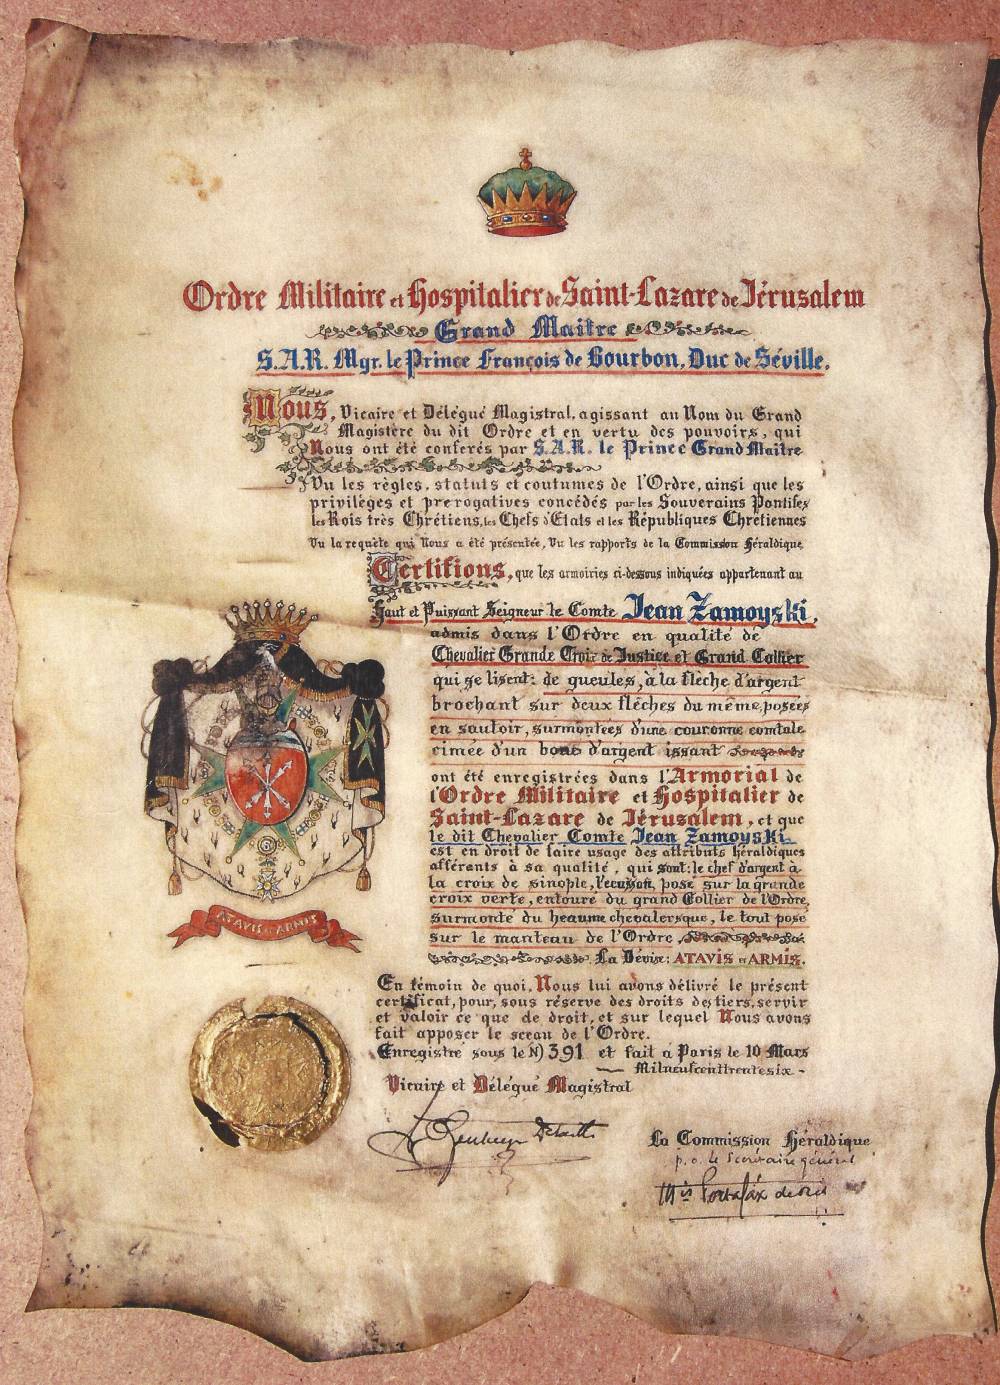 Ordre Militaire et Hospitalier de Saint-Lazare de Jérusalem
Grand Maître
S.A.R. Mgr. le Prince François de Bourbon, Duc de Séville.
Nous, Vicaire et Délégué Magistral, agissant au Nom du Grand
Magistère du dit Ordre et en vertu des pouvoirs, qui
Nous ont été conferés par S.A.R. le Prince Grand Maitre
Vu les règles, statuts et coutumes de l'Ordre, ainsi que les
privilèges et prerogatives concédés par les Souverains Pontifes
les Rois très Chrétiens, les Chefs d'Etats et les Républiques Chrétiennes
Vu la requête qui Nous a été présentée, Vu les rapports de la Commission Héraldique
Certifions, que les armoiries ci-dessous indiquées appartenant au
Haut et Puissant Seigneur le Comte Jean Zamoyski,
admis dans l'Ordre en qualité de
Chevalier Grande Croix de Justice et Grand Collier
qui se lisent: de gueules, à la flèche d'argent
brochant sur deux flèches du même, posées
en sautoir, surmontées d'une couronne comtale
cimée d'un bouc d'argent issant
ont été enregistrées dans l'Armorial de
l'Ordre Militaire et Hospitalier de
Saint-Lazare de Jérusalem, et que
le dit Chevalier Comte Jean Zamoyski
est en droit de faire usage des attributs héraldiques
afférants à sa qualité, qui sont: le chef d'argent à
la croix de sinople, l'ecusson posé sur la grande
croix verte, entouré du grand Collier de l'Ordre,
surmonté du heaume chevaleresque, le tout posé
sur le manteau de l'Ordre
La Dévise: ATAVIS et ARMIS.
ATAVIS et ARMIS
En témoin de quoi, Nous lui avons délivré le présent
certificat, pour, sous réserve des droits des tiers, servir
et valoir ce que de droit, et sur lequel Nous avons
fait apposer le sceau de l'Ordre.
Enregistré sous le N) 391 et fait à Paris le 10 Mars
Milneufcenttrentesix -
Vicaire et Délégué Magistral
La Commission Héraldique
p.o. le Secrétaire général